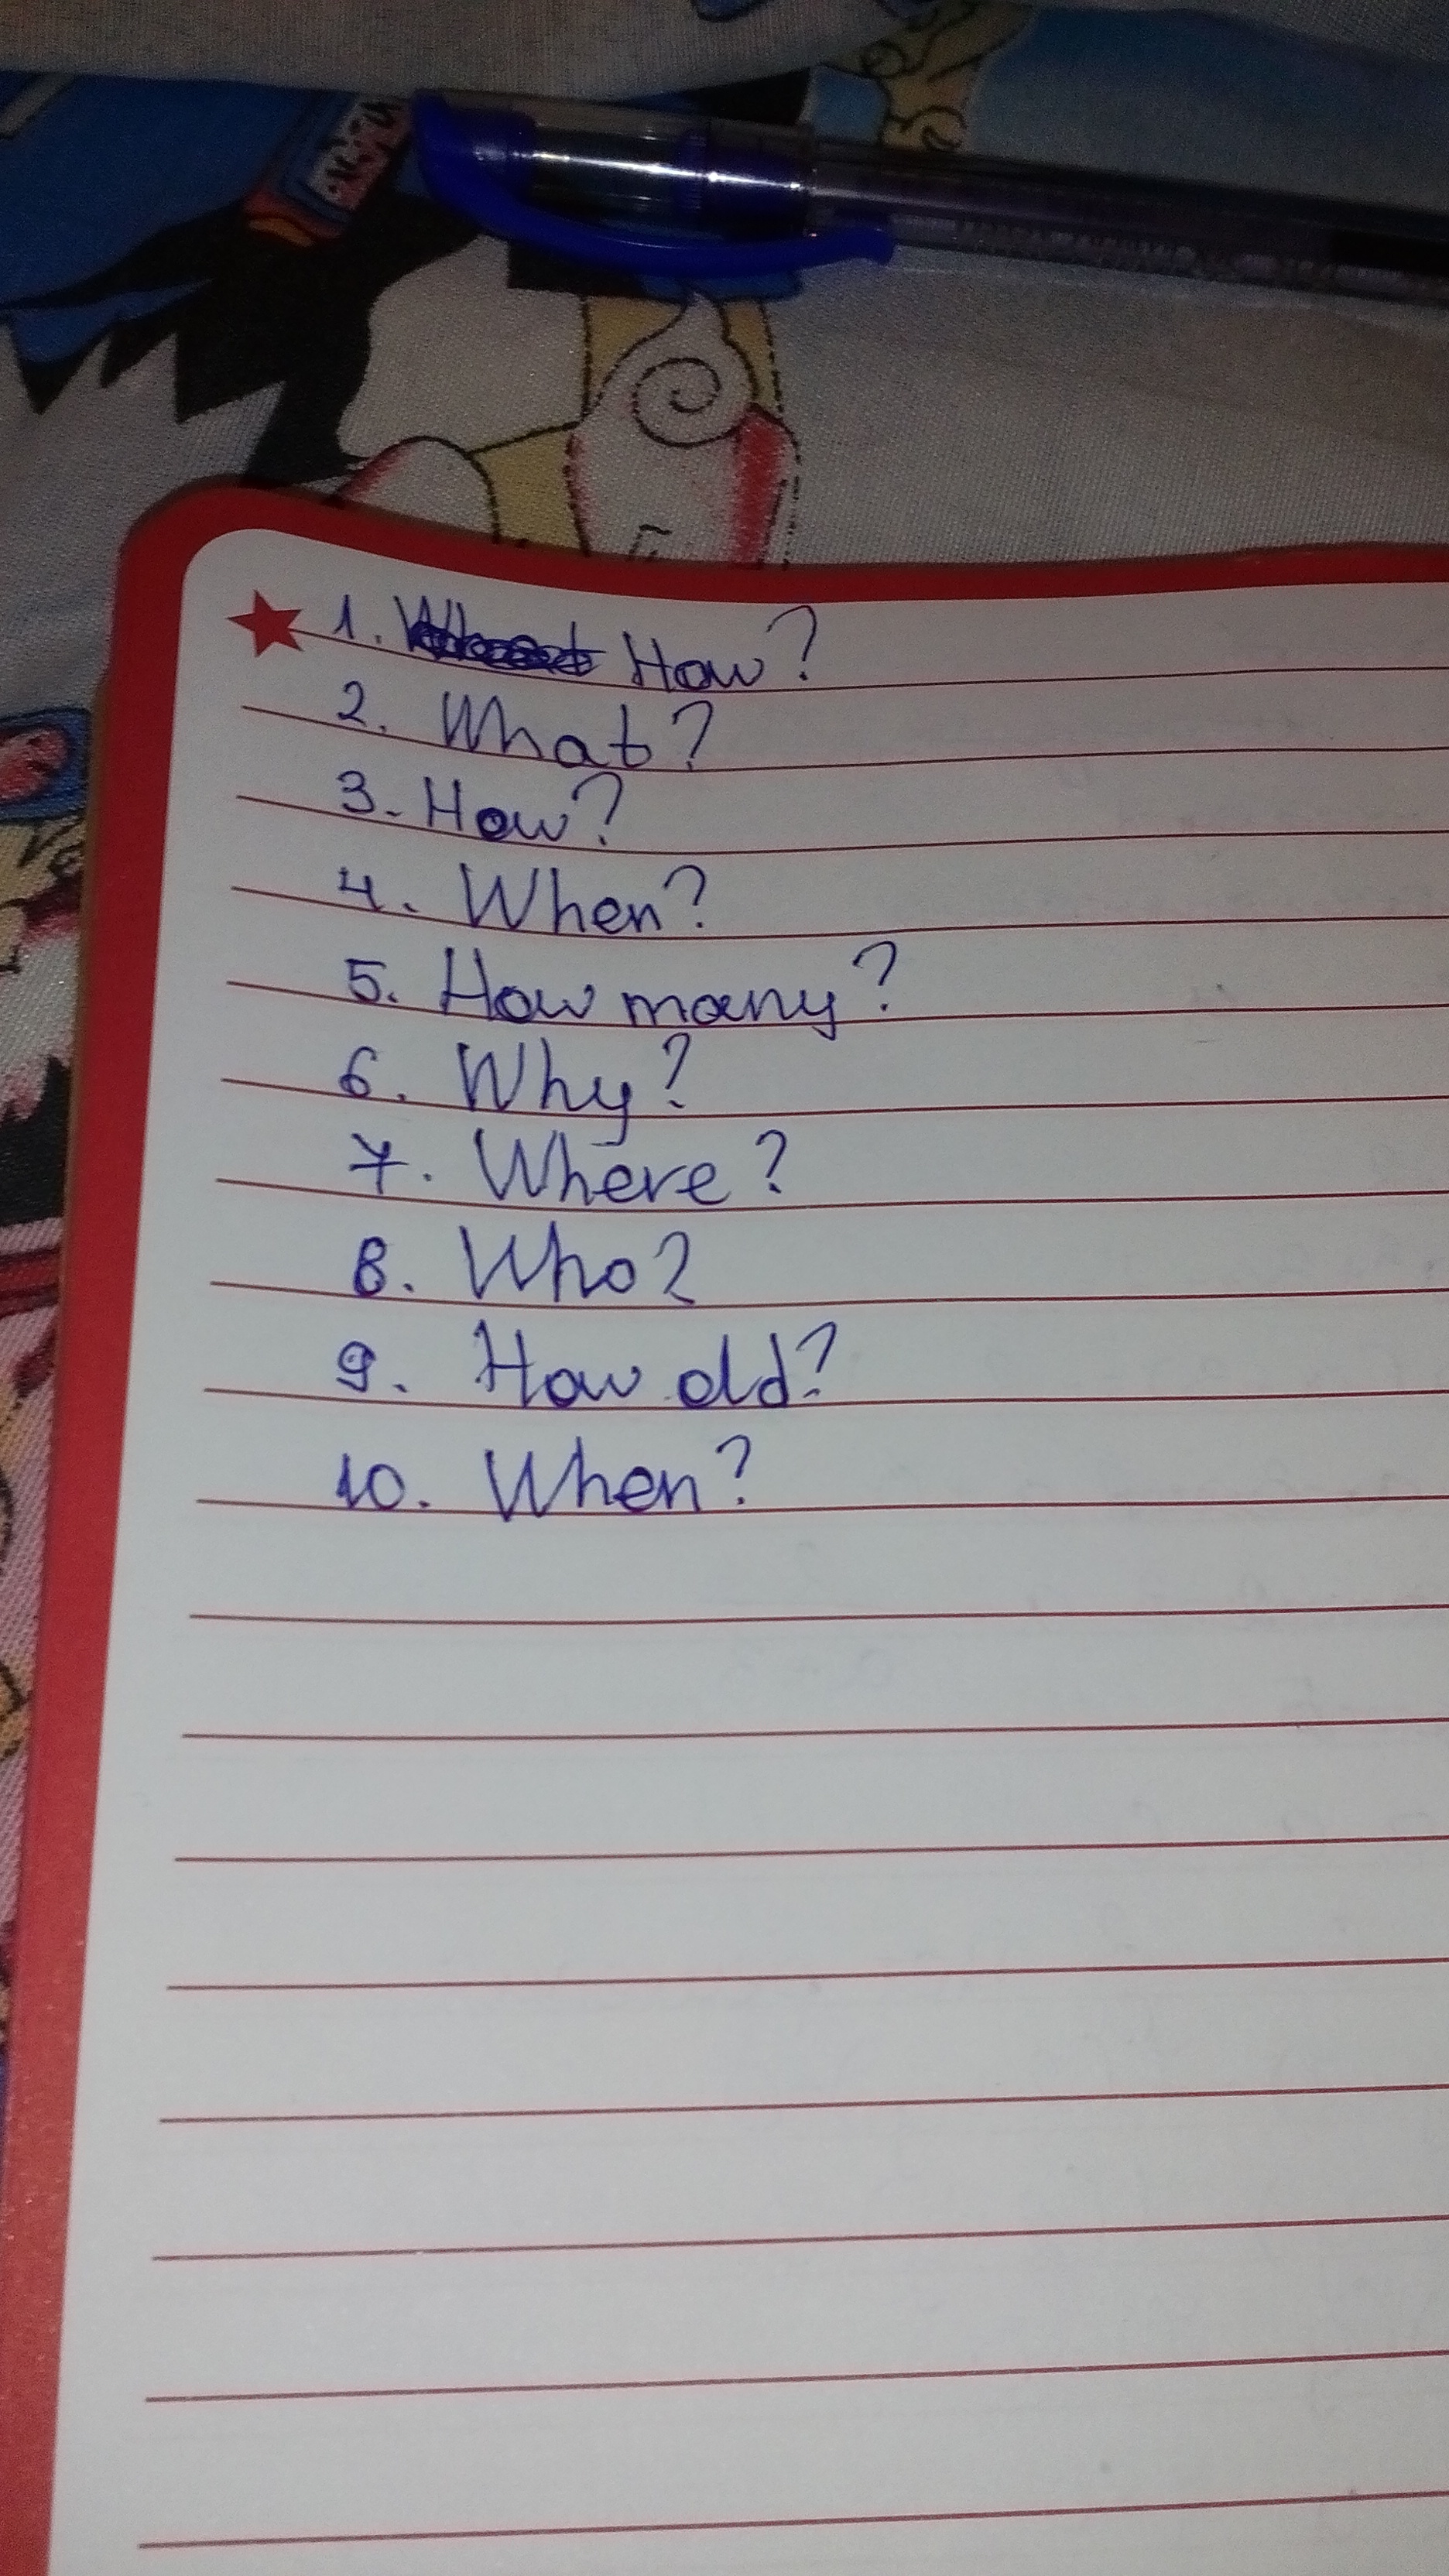 1. What How?
2. What?
3. How?
4. When?
5. How many?
6. Why?
7. Where?
8. Who?
9. How old?
10. When?